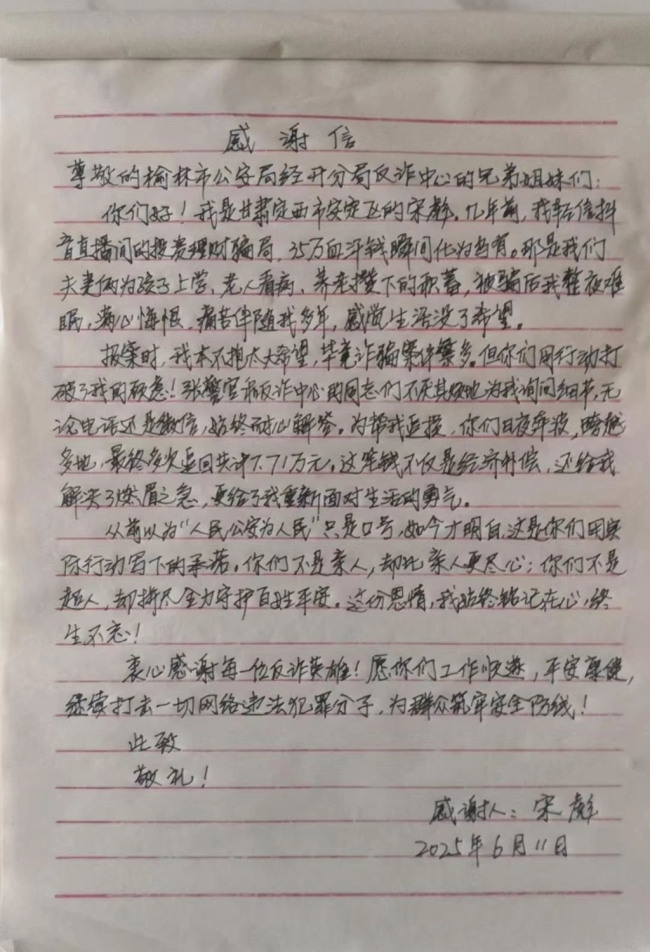 感谢信
尊敬的榆林市公安局经开分局反诈中心的兄弟姐妹们：
你们好！我是甘肃定西市安定区的宋群。几年前，我轻信抖
音直播间的投资理财骗局，35万血汗钱瞬间化为乌有。那是我们
夫妻俩为孩子上学、老人看病、养老攒下的积蓄，被骗后我整夜难
眠，满心悔恨，痛苦伴随我多年，感觉生活没了希望。
报案时，我本不抱太大希望，毕竟诈骗案件繁多。但你们用行动打
破了我的顾虑！张警官和反诈中心的同志们不厌其烦地为我询问细节，无
论电话还是微信，始终耐心解答。为帮我追损，你们日夜奔波，跨越
多地，最终多次追回共计7.71万元。这笔钱不仅是经济补偿，还给我
解决了燃眉之急，更给了我重新面对生活的勇气。
从前以为“人民公安为人民”只是口号，如今才明白，这是你们用实
际行动写下的承诺。你们不是亲人，却比亲人更尽心；你们不是
超人，却拼尽全力守护百姓平安。这份恩情，我始终铭记在心，终
生不忘！
衷心感谢每一位反诈英雄！愿你们工作顺遂，平安康健，
继续打击一切网络违法犯罪分子，为群众筑牢安全防线！
此致
敬礼！
感谢人：宋群
2025年6月11日